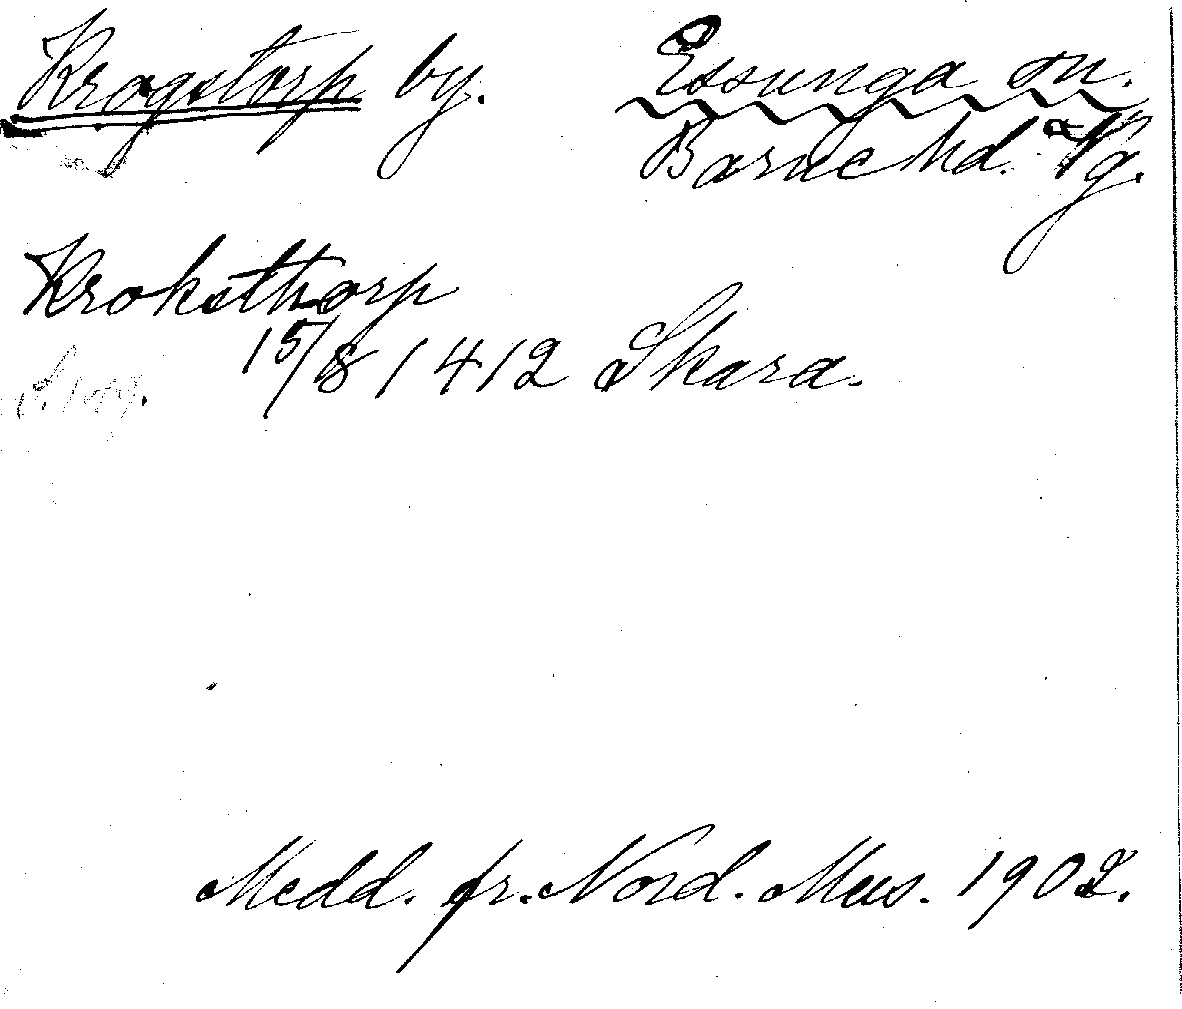 Krogstorp by. Essunga sn.
Barne hd. Vg.
Kroksthorp
15/8 1412 Skara.
Medd. fr. Nord. Mus. 1902.